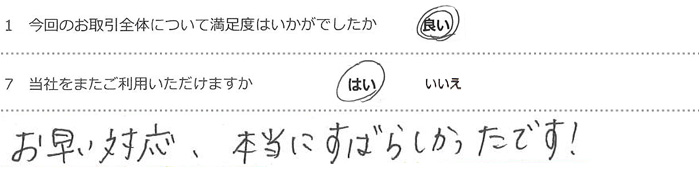 1 今回のお取引全体について満足度はいかがでしたか 良い
7 当社をまたご利用いただけますか はい いいえ
お早い対応、本当にすばらしかったです!